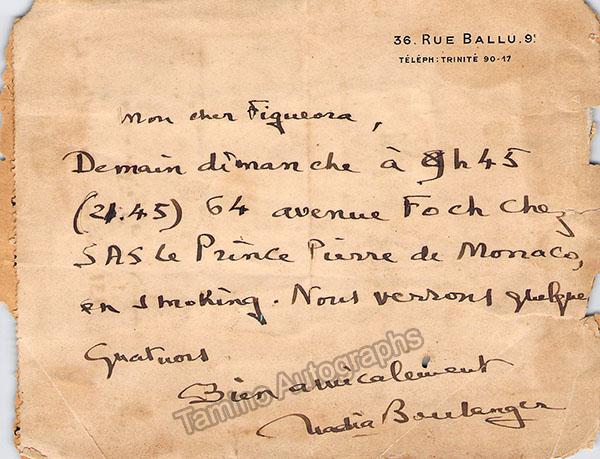 36. RUE BALLU. 9ᵉ
TÉLÉPH: TRINITÉ 90-17
Mon cher Figueora,
Demain dimanche à 9h45
(21.45) 64 avenue Foch chez
SAS le Prince Pierre de Monaco,
en smoking. Nous verrons quelque
Quatuors
Bien amicalement
Nadia Boulanger
Tamino Autographs